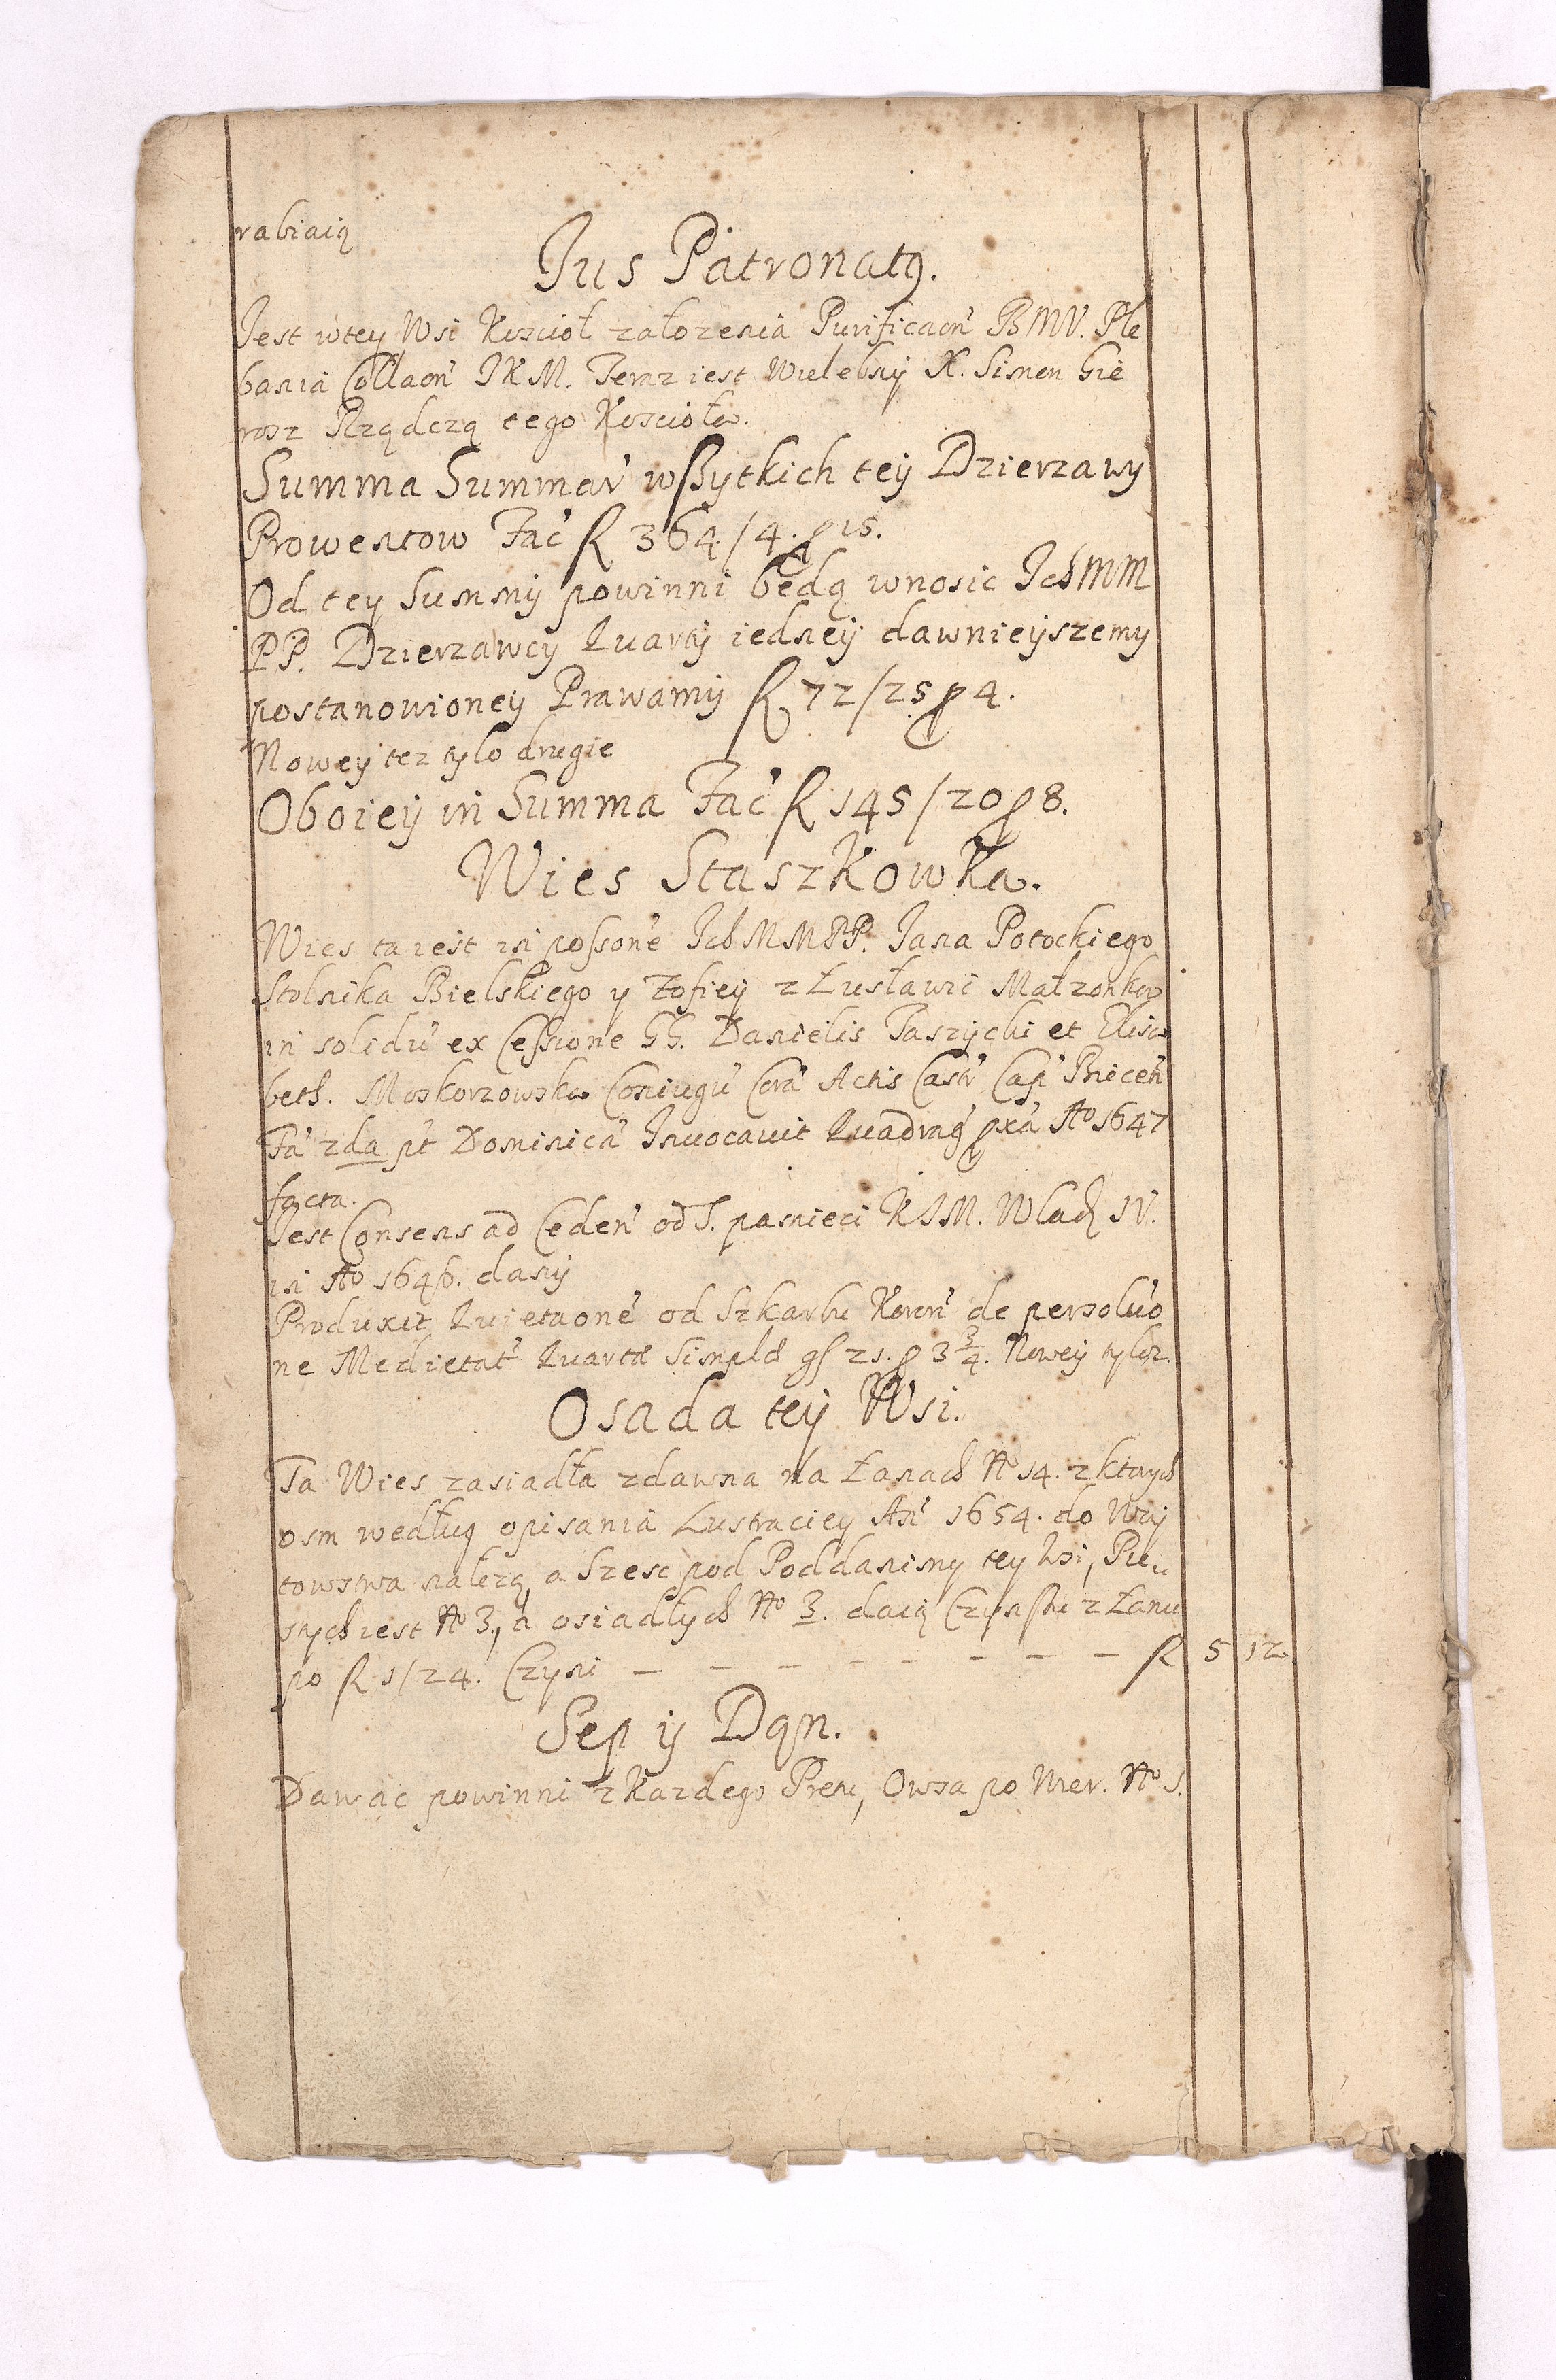 rabiaią
Jus Patronatq.
Jest wtey Wsi Koscioł załozenia Purificaon BMV. Ple
bania Collaon JKM. Teraz iest Wielebny X. Simon Gie
rosz Rządczą tego Koscioła.
Summa Summar wszytkich tey Dzierzawy
Prowentow Fac fl 364/4. ₰ 15.
Od tey Summy powinni będą wnosic IchMM
PP. Dzierzawcy Quarty iedney dawnieyszemy
postanowioney Prawamy fl 72/25 ₰ 4.
Nowey tez tylo drugie
Oboiey in Summa Fac fl 145/20 ₰ 8.
Wies Staszkowka.
Wies ta iest in possone IchMMPP. Jana Potockiego
Stolnika Bielskiego y Zofiey z Łusławic Małzonkow
in solidu ex Cessione GG. Danielis Taszycki et Elisa
beth. Moskorzowska Coniugu Cora Actis Castr Cap Biecen
Fa 2da pt Dominica Invocavit Quadrag pxa Ao 1647
facta.
Jest Consens ad Ceden od S. pamieci KJM. Wlad IV.
in Ao dany
Produxit Quietaone od Szkarbu Koron de persoluo
ne Medietat Quartæ Simplæ gs 21. ₰ 3 3/4. Nowey tylez.
Osada tey Wsi.
Ta Wies zasiadła zdawna na Łanach No 14. z ktorych
osm według opisania Lustraciey An 1654. do Woy
towstwa nalezą, a Szesc pod Poddanimy tey Wsi, Pu
stych iest No 3., a osiadłych No 3. daią Czynszu z Łanu
po fl 1/24. Czyni — — — — — — — fl 5 12
Sep y Dan.
Dawac powinni z Kazdego Pretu, Owsa po Mier. No 1.